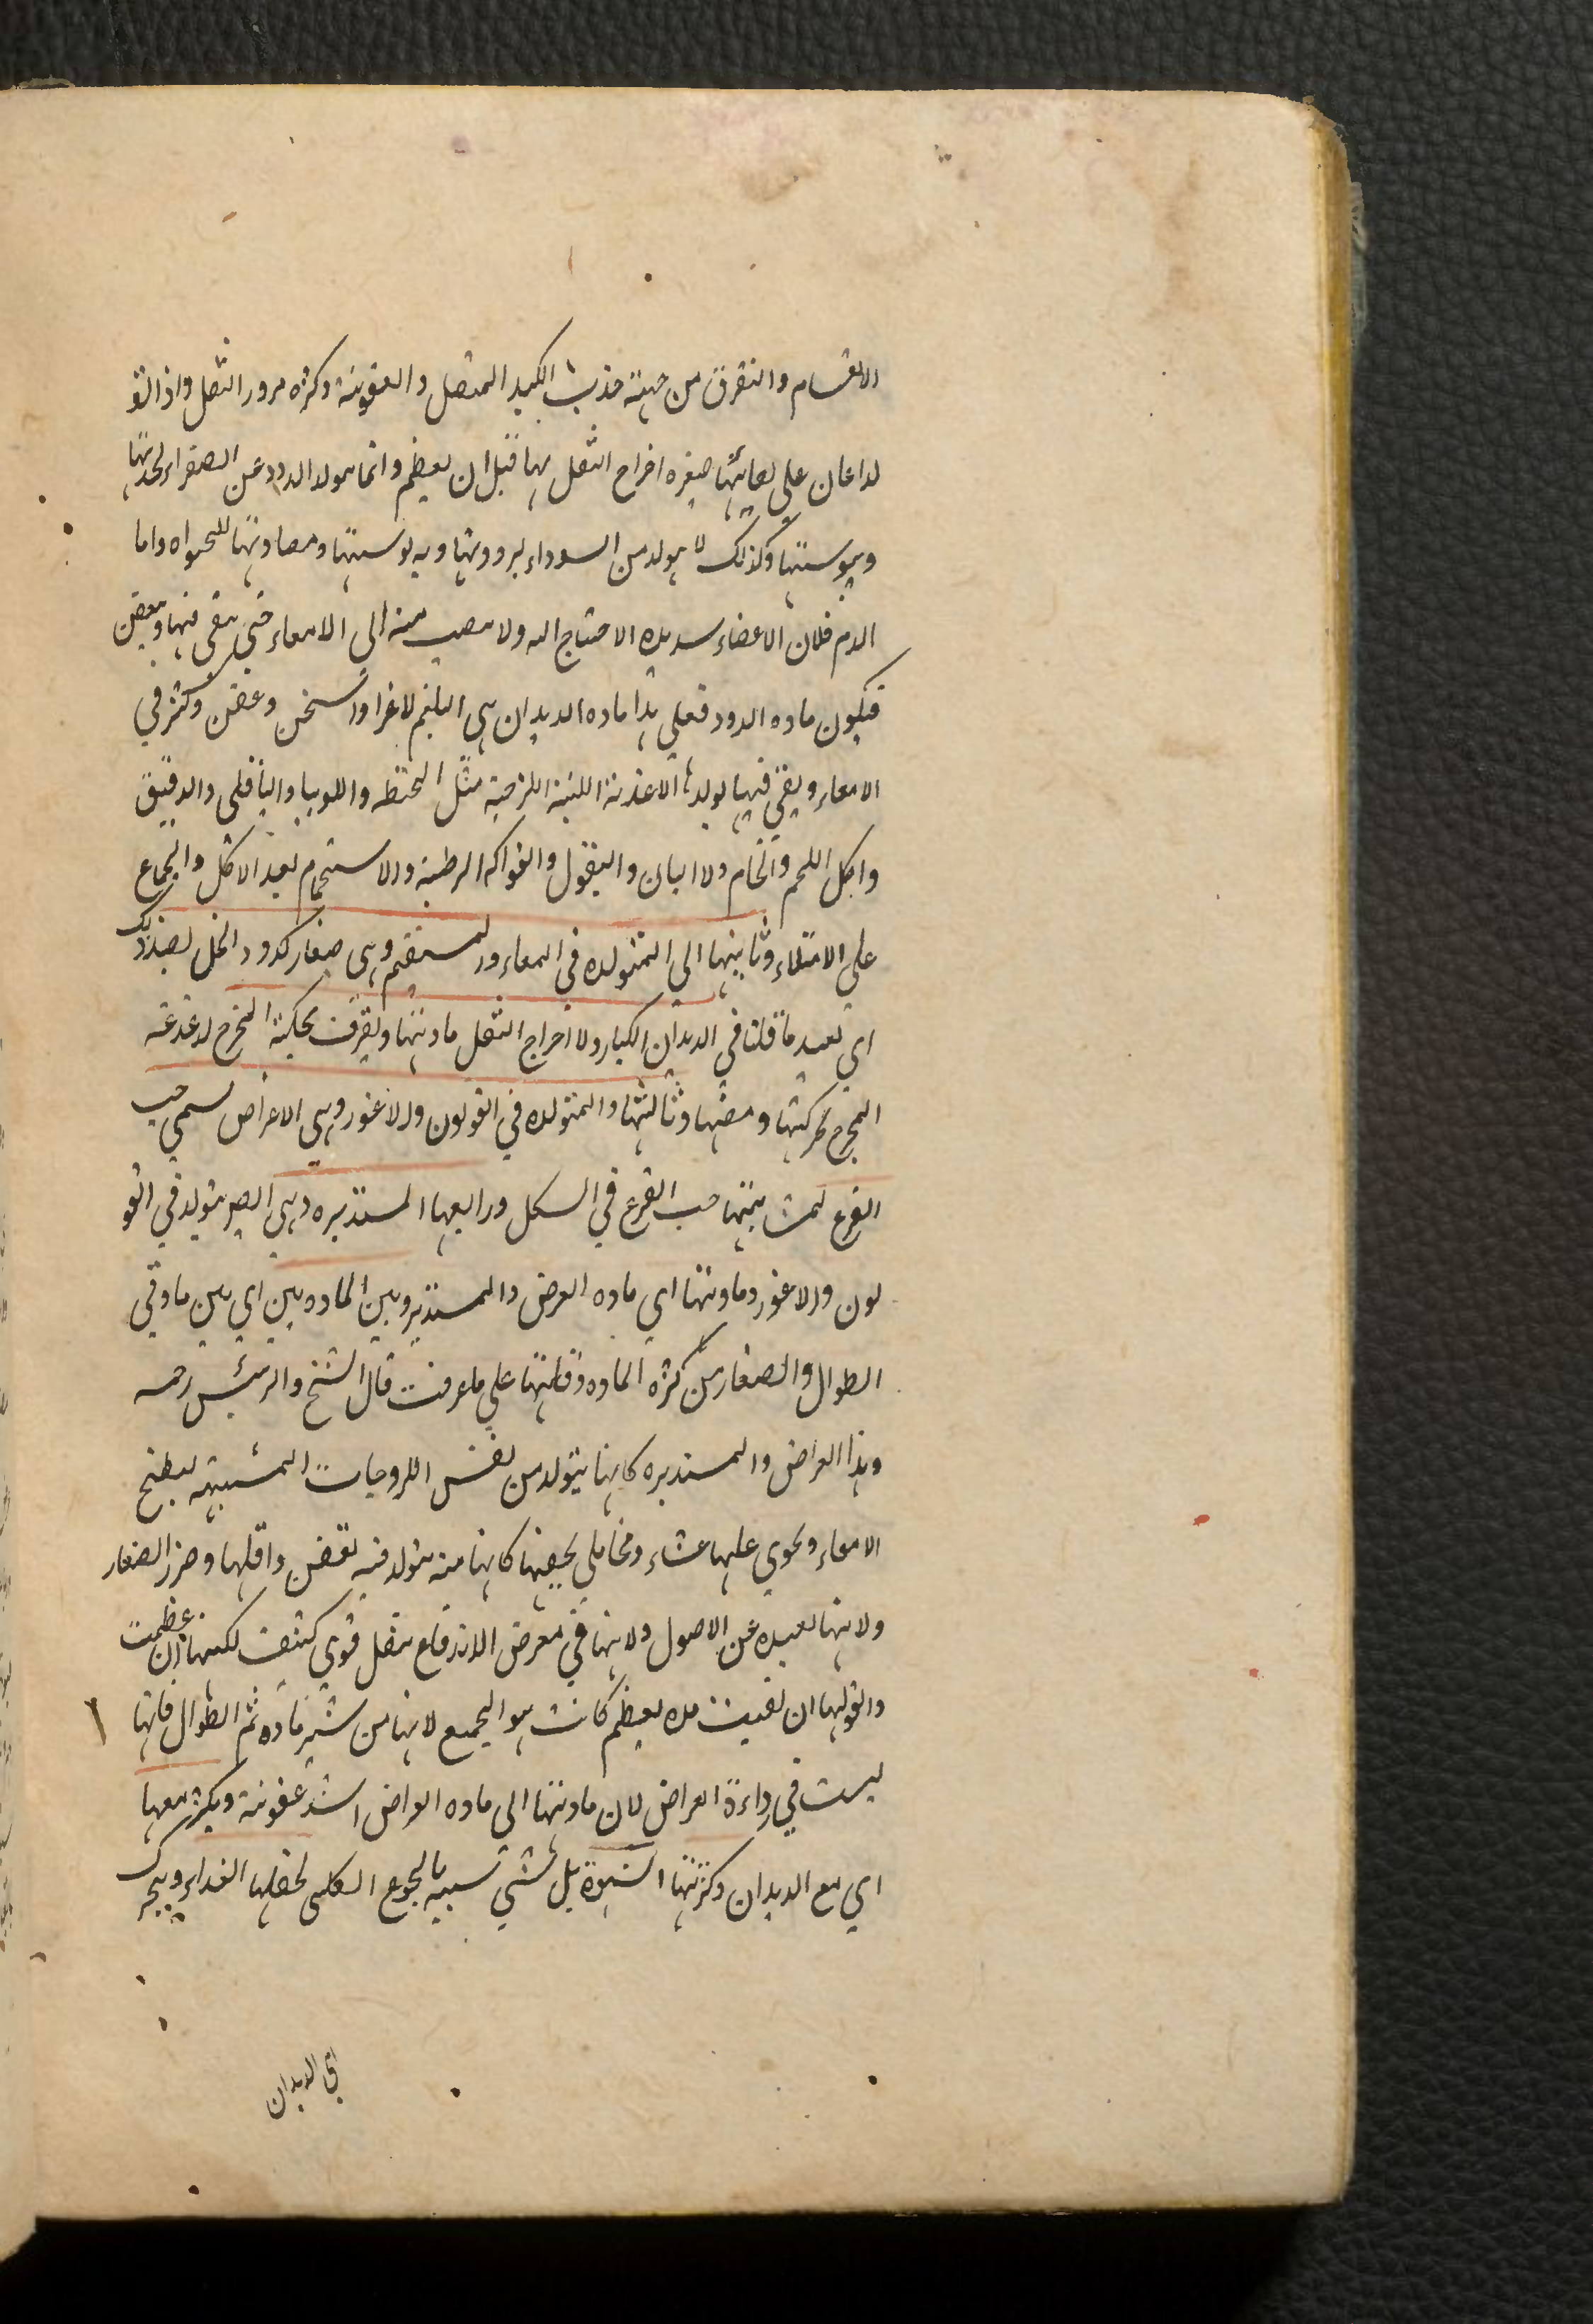 الانقسام والتفرق من جهته جذب الكبد المتصل والعفونة وكثرة مرور الثفل واذا لتو
لدا عان على بقائها صغيره اخراج الثفل بها قبل ان يعظم وانما يولد الدود عن الصفراء لحدتها
ويبوستها وكذلك لا يولد من السوداء لبرودتها ويبوستها ومضادتها للحياه واما
الدم فلان الاعضاء شديده الاحتياج اليه ولا يصب منه الى الامعاء حتى يبقى فيها ويعفن
فيكون ماده الدود فعلى هذا ماده الديدان هي البلغم لا غير اذا سخن وعفن وكثر في
الامعاء وبقي فيها يولدها الاغذية اللزجة مثل الحنطه واللوبيا والباقلى والدقيق
واكل اللحم والخام والالبان والبقول والفواكه الرطبة والاستحمام بعد الاكل والجماع
على الامتلاء وثانيها الى المتولده في المعاء والمستقيم وهي صغار كدود الخل لضد ذلك
اي بعيد ما قلنا في الديدان الكبار ولاخراج الثفل مادتها ويفرق بحكة المخرج لدغدغة
المخرج بحركتها ومصها وثالثها والمتولده في القولون والاعور وهي الاعراض يسمى حب
القرع لمشابهتها حب القرع في الشكل ورابعها المستديره وهي ايضا يتولد في القو
لون والاعور ومادتها اي ماده العرض والمستدير وبين المادتين اي بين مادتي
الطوال والصغار من كثرة الماده وقلتها على ما عرفت قال الشيخ والرئيس رحمه
وهذا العراض والمستديره كانها يتولد من نفس اللزوجات المشبثه بسطح
الامعاء ويحوي عليها غشاء مخاطي يجففها كانها منه يتولد فيه تعفن واقلها ضرر الصغار
ولانها بعيده عن الاصول ولانها في معرض الاندفاع بثفل قوي كثيف لكنها ان عظمت
واتفق لها ان بقيت مده يعظم كانت شر الجميع لانها من شر ماده ثم الطوال فانها
ليست في رداءة العراض لان مادتها الى ماده العراض اشد عفونة ويكثر معها
اي مع الديدان وكثرتها الشهوة بل شيء شبيه بالجوع الكلبي لخطفها الغذاء ويتحرك
اي الديدان